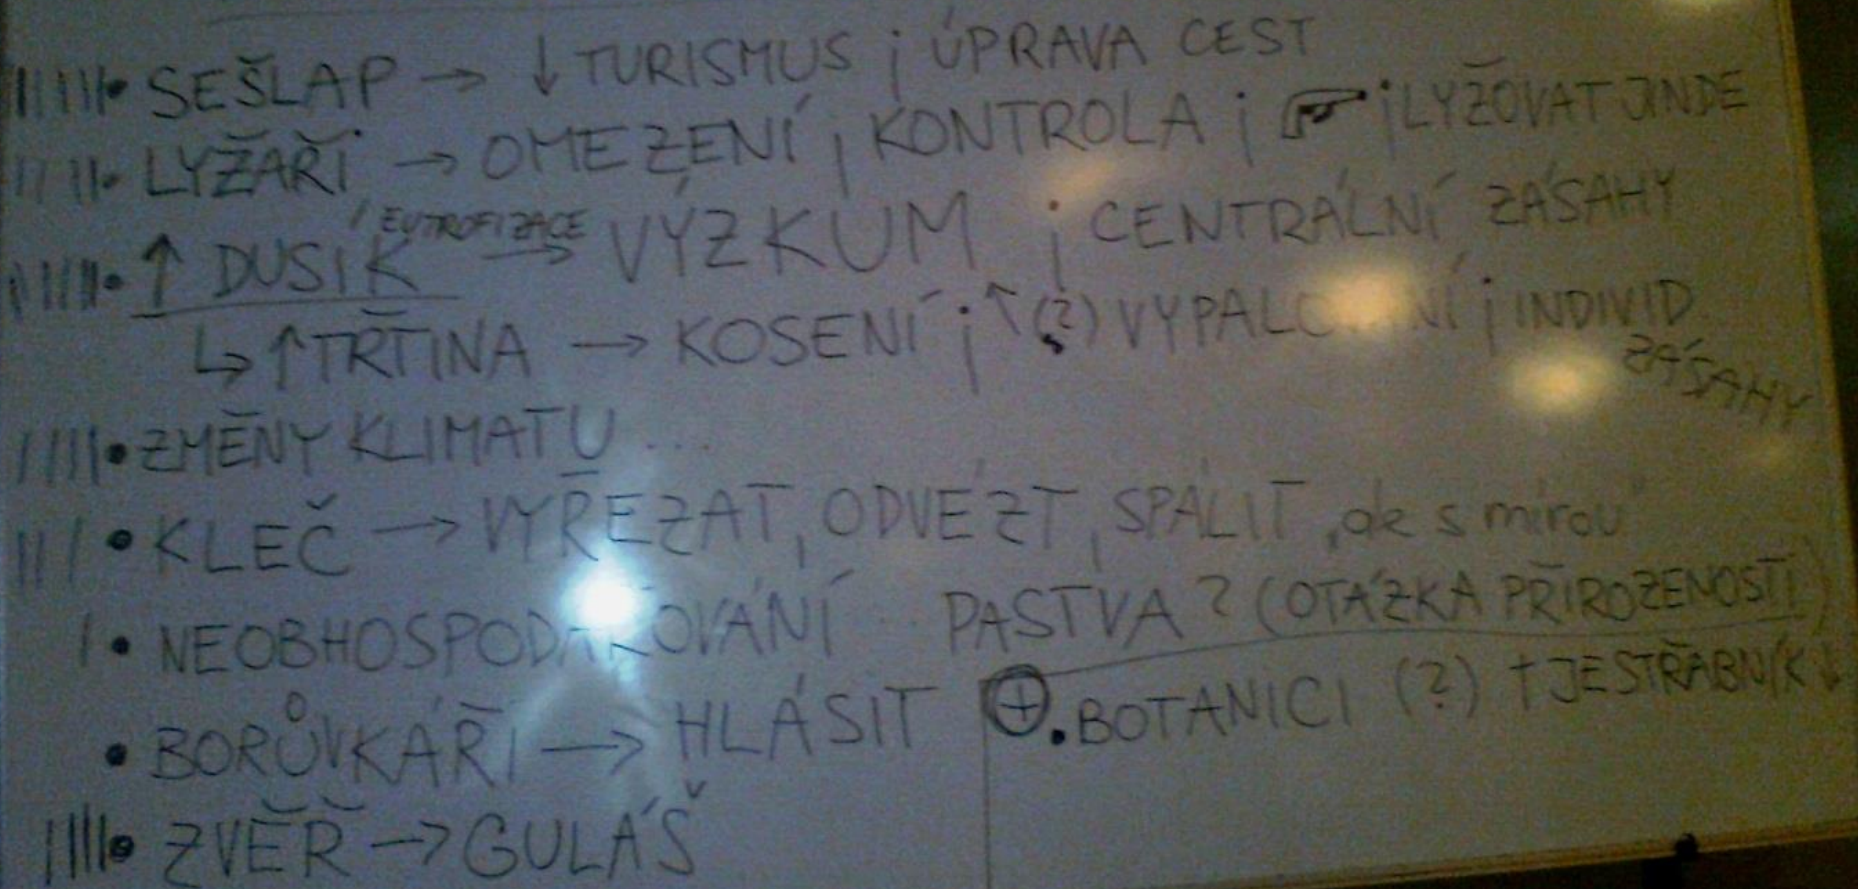 ||||| • SEŠLAP → ↓ TURISMUS ; ÚPRAVA CEST
|||| • LYŽAŘI → OMEZENÍ ; KONTROLA ; ☞ ; LYŽOVAT JINDE
||||| • ↑ DUSÍK / EUTROFIZACE → VÝZKUM ; CENTRÁLNÍ ZÁSAHY
↳ ↑ TRTINA → KOSENÍ ; ↑ (?) VYPALOVÁNÍ ; INDIVID. ZÁSAHY
||||| • ZMĚNY KLIMATU ...
|||| • KLEČ → VYŘEZAT, ODVÉZT, SPÁLIT, ale s mírou
| • NEOBHOSPODAŘOVÁNÍ ... PASTVA ? (OTÁZKA PŘIROZENOSTI)
• BORŮVKÁŘI → HLÁSIT
⊕ • BOTANICI (?) † JESTŘÁBNÍK ↓
||||| • ZVĚŘ → GULÁŠ